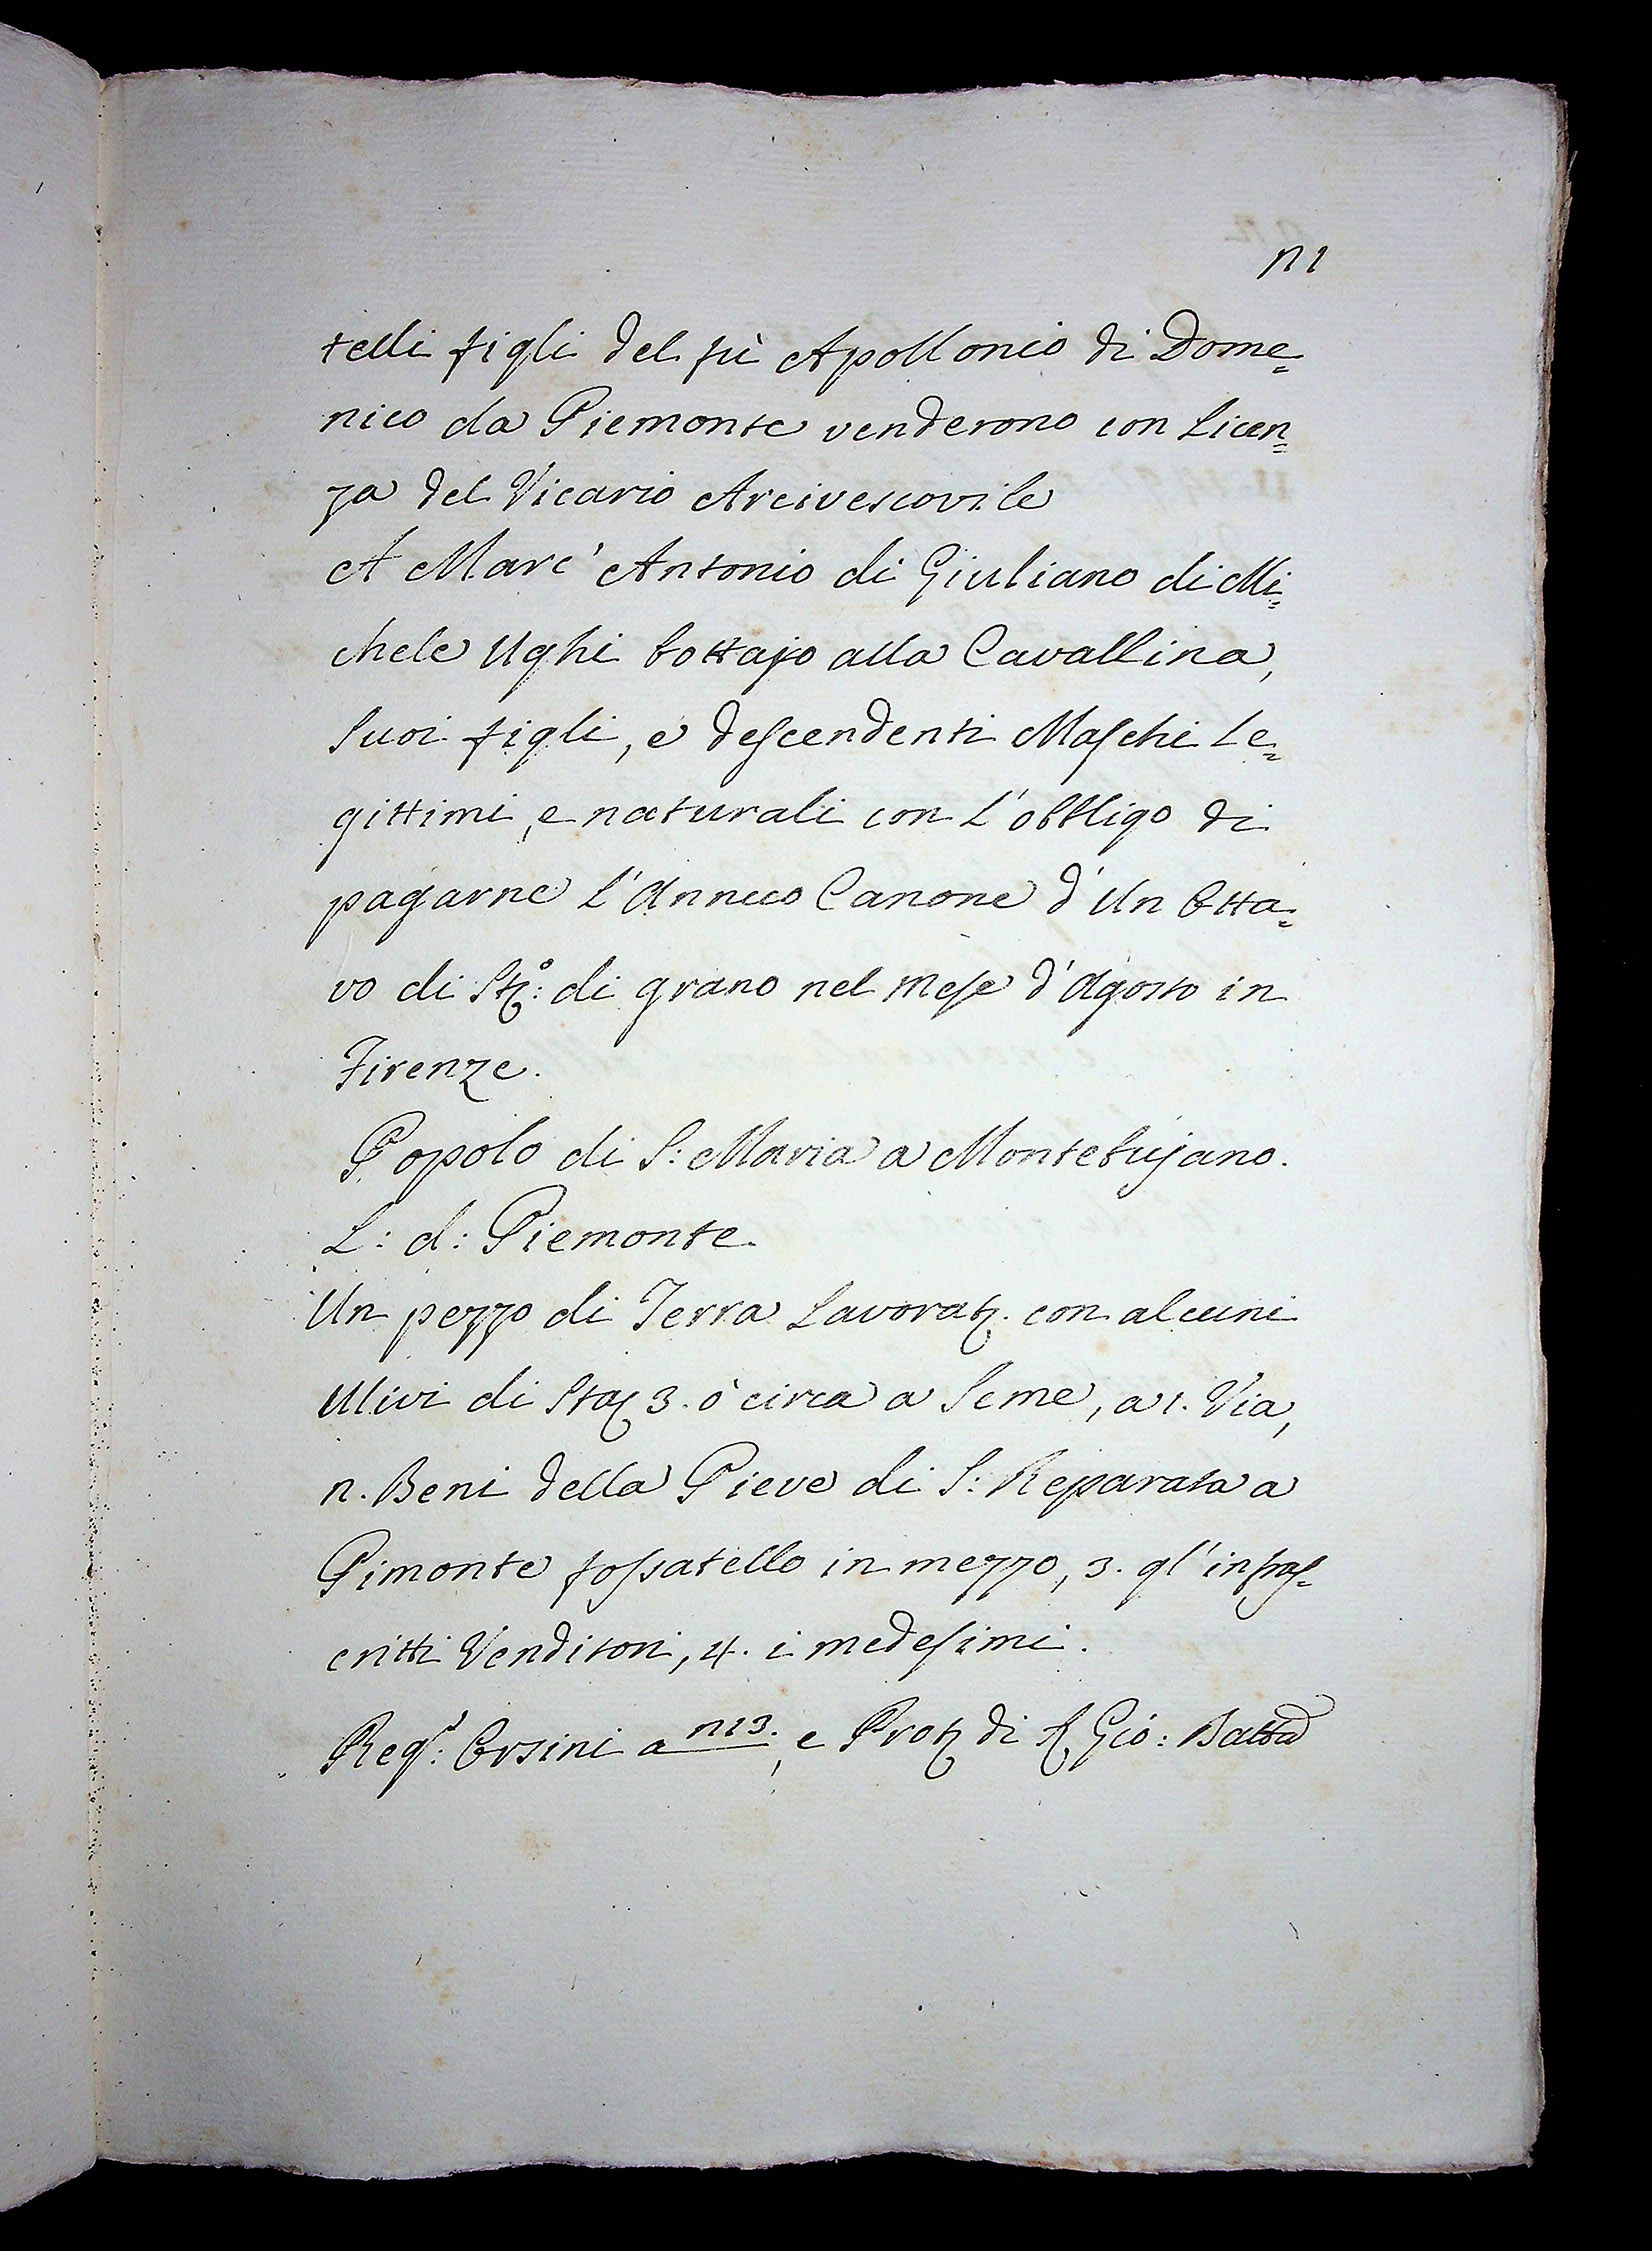 171
telli figli del fù Apollonio di Dome=
nico da Piemonte venderono con Licen=
za del Vicario Arcivescovile
A Marc' Antonio di Giuliano di Mi=
chele Ughi bottajo alla Cavallina,
Suoi figli, e descendenti Maschi Le=
gittimi, e naturali con L'obbligo di
pagarne L'Annuo Canone d'Un Otta=
vo di St.º: di grano nel Mese d'Agosto in
Firenze.
Popolo di S: Maria a Montebujano.
L: d: Piemonte.
Un pezzo di Terra Lavorat. con alcuni
Ulivi di Sta 3. ò circa a Seme, a 1. Via,
n. Beni della Pieve di S: Reparata a
Pimonte fossatello in mezzo, 3. gl'infras=
critti Venditori, 4. i medesimi.
Reg.º: Orsini a 123., e Prot di S Gio: Batta